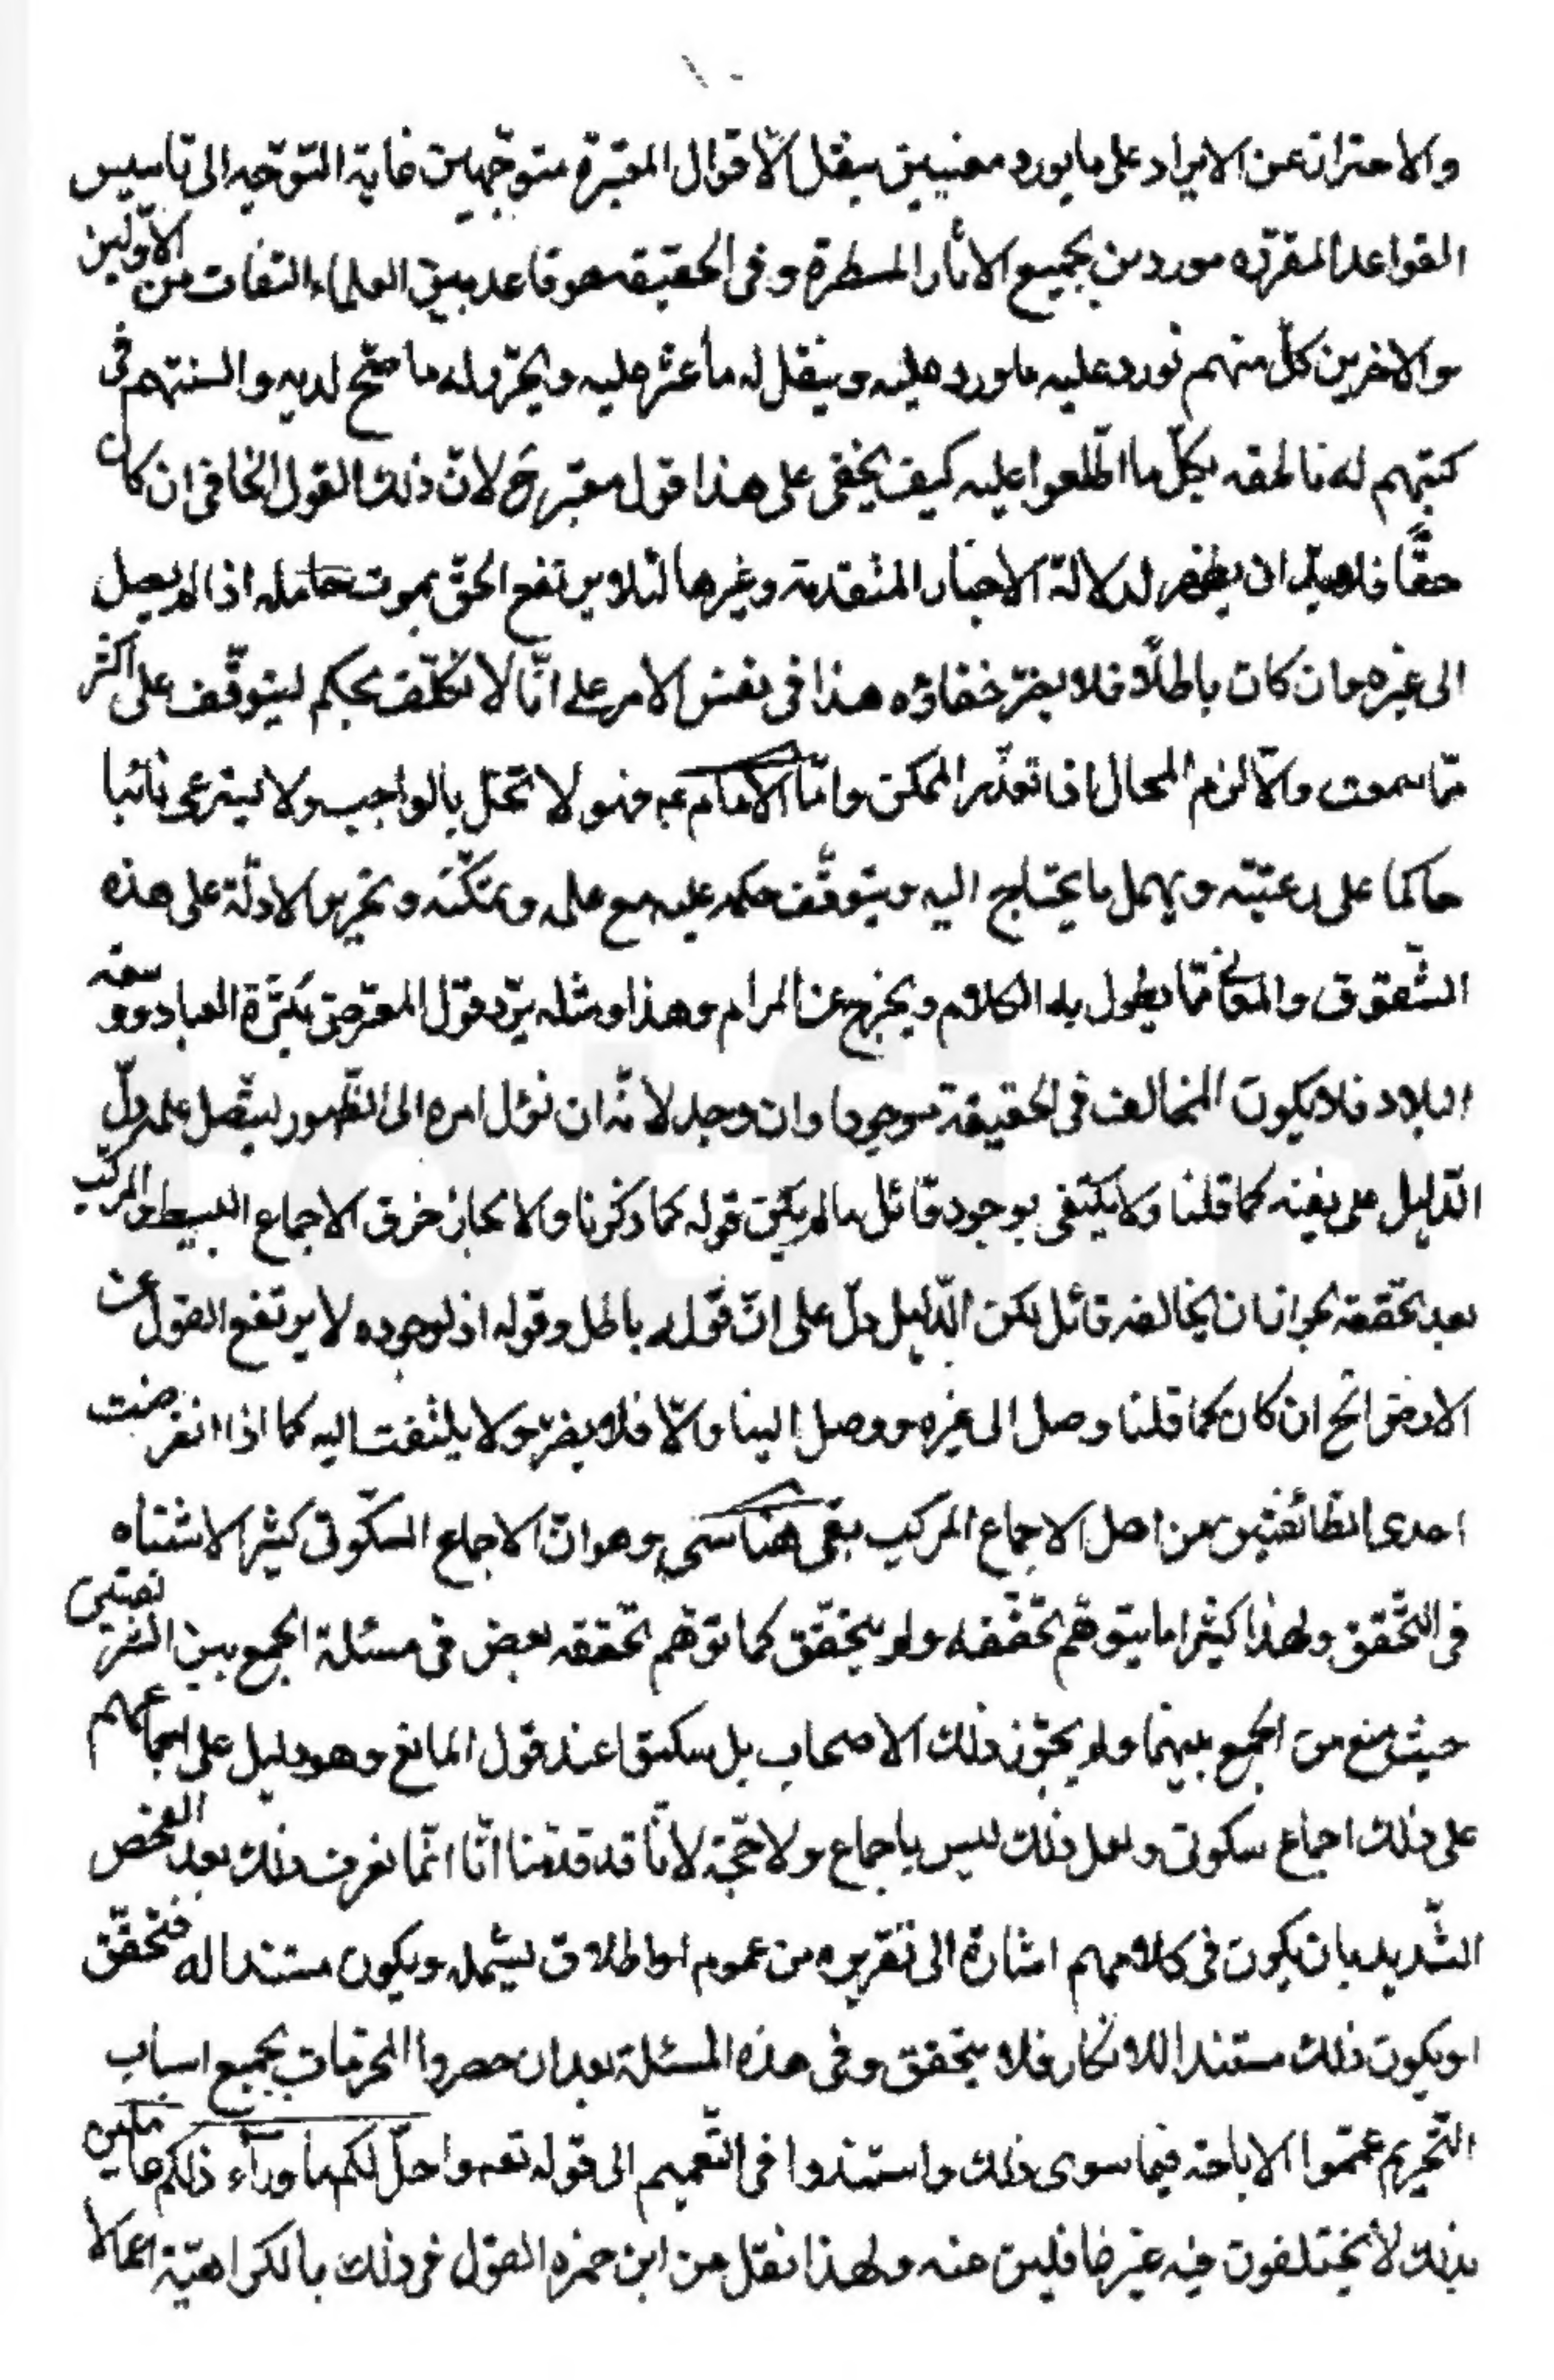 ١٠
والاحتراز عن الايراد على ما يورد معنيين بنقل الأقوال المعتبرة متوجهين غاية التوجيه الى تاسيس
القواعد المقررة موردين بجميع الاثار المسطرة وفى الحقيقة هو قاعد بين العلماء الثقات من الأولين
والاخرين كل منهم تورد عليه ما ورد عليه وينقل له ما عثر عليه ويحرر له ما صح لديه والسنتهم فى
كتبهم له ناطقه بكل ما اطلعوا عليه كيف يخفى على هذا قول معتبر ح لان ذلك القول الخافى ان كان
حقا فلابد ان يظهر لدلالة الاخبار المتقدمة وغيرها لئلا يرتفع الحق بموت حامله اذا لم يصل
الى غيره وان كان باطلا فلا يضر خفاؤه هذا فى نفس الامر على انا لا نكلف بحكم ليتوقف على اكثر
مما سمعت والا لزم المحال اذا تعذر الممكن واما الامام ع فهو لا تخل بالواجب ولا يسترعى نائبا
حاكما على رعيته ويهمل ما يحتاج اليه ويتوقف حكمه عليه مع علمه وتمكنه وتحرير الادلة على هذه
الشقوق مما يطول به الكلام ويخرج عن المرام وهذا ومثله يرد قول المعترض بكثرة العباد وسعة
البلاد فلا يكون المخالف فى الحقيقة موجودا وان وجد لانه ان نزل امره الى الظهور ليتصل علمه دل
الدليل على نفيه كما قلنا ولا يكتفى بوجود قائل ما لم يكن قوله كما ذكرنا والا لجاز خرق الاجماع البسيط والمركب
بعد تحققه لجواز ان يخالفه قائل لكن الدليل دل على ان قوله باطل وقوله اذ لوجوده لا يرتفع القول عن
الارض الح ان كان كما قلنا وصل الى غيره ووصل الينا والا فلا يضر ولا يلتفت اليه كما اذا انقرضت
احدى الطائفتين من اهل الاجماع المركب بقى هنا شىء وهو ان الاجماع السكوتى كثير الاشتباه
فى التحقق ولهذا كثيرا ما يتوهم تحققه ولم يتحقق كما توهم تحققه بعض فى مسئلة الجمع بين الشريفتين
حيث منع من الجمع بينهما ولم يجوز ذلك الاصحاب بل سكتوا عند قول المانع وهو دليل على اجماعهم
على ذلك اجماع سكوتى ولعل ذلك ليس باجماع ولا حجة لانا قد قدمنا انا انما نعرف ذلك بعد الفحص
الشديد بان يكون فى كلامهم اشارة الى تقريره من عموم او اطلاق يشمله ويكون مستندا له فتحقق
او يكون ذلك مستندا للانكار فلا يتحقق وفى هذه المسئلة بعد ان حصروا المحرمات بجميع اسباب
التحريم عمموا الاباحة فيما سوى ذلك واستندوا فى التعميم الى قوله تعه واحل لكم ما وراء ذلكم
بذلك لا يختلفون فيه غير غافلين عنه ولهذا نقل من ابن حمزه القول فى ذلك بالكراهية اعمالا